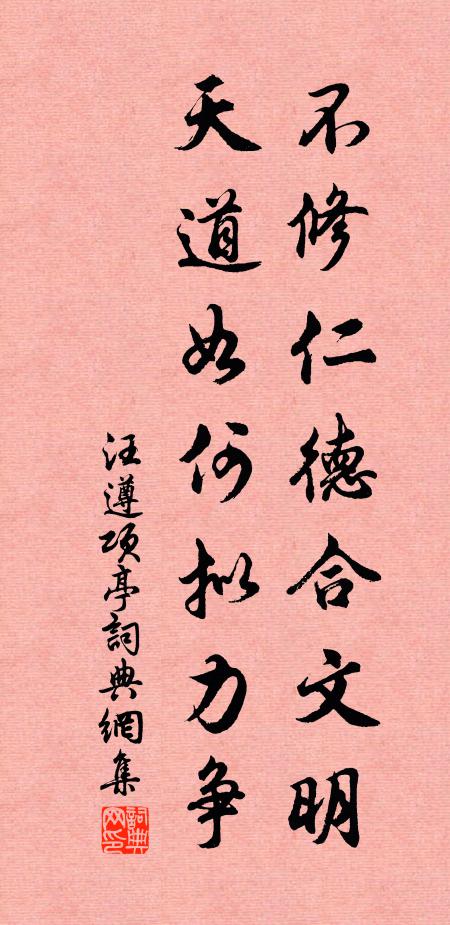 不修仁德合文明
天道如何拟力争
汪遵项亭詞典網集
詞典网印